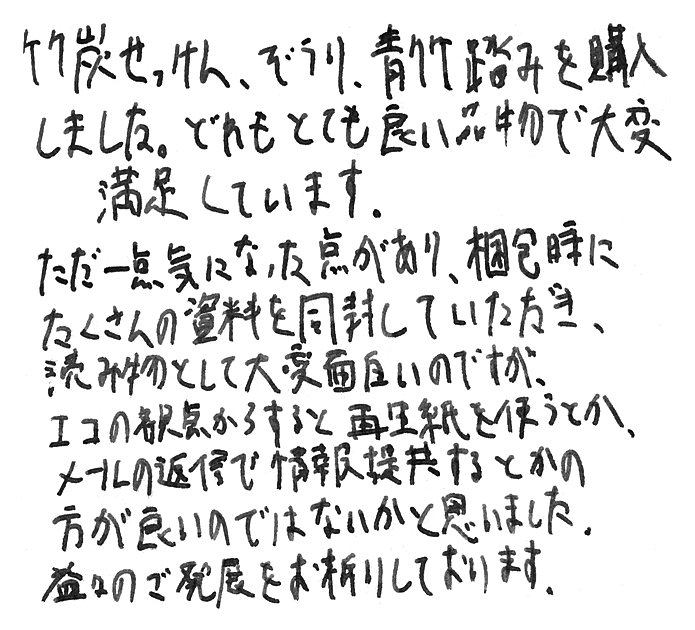 竹炭せっけん、ぞうり、青竹踏みを購入
しました。どれもとても良い品物で大変
満足しています。
ただ一点気になった点があり、梱包時に
たくさんの資料を同封していただき、
読み物として大変面白いのですが、
エコの観点からすると再生紙を使うとか、
メールの返信で情報提供するとかの
方が良いのではないかと思いました。
益々のご発展をお祈りしております。